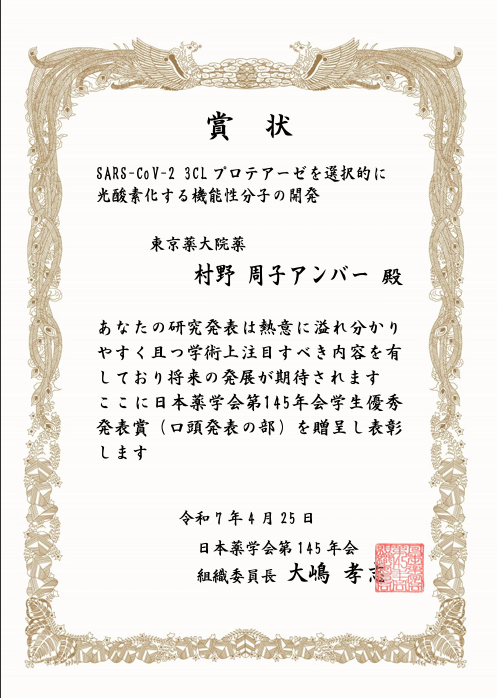 賞状
SARS-CoV-2 3CLプロテアーゼを選択的に
光酸素化する機能性分子の開発
東京薬大院薬
村野 周子アンバー 殿
あなたの研究発表は熱意に溢れ分かり
やすく且つ学術上注目すべき内容を有
しており将来の発展が期待されます
ここに日本薬学会第145年会学生優秀
発表賞（口頭発表の部）を贈呈し表彰
します
令和7年4月25日
日本薬学会第145年会
組織委員長 大嶋 孝志